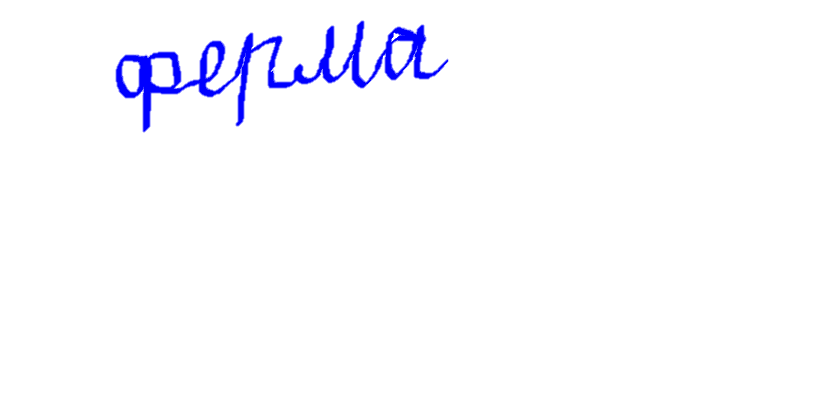 ферма